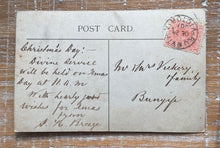 POST CARD.
Christmas Day:-
Divine Service
will be held on Xmas
Day at 11 a.m.
With hearty good
wishes for Xmas
from
Mr & Mrs Vickery
family
Bunyip